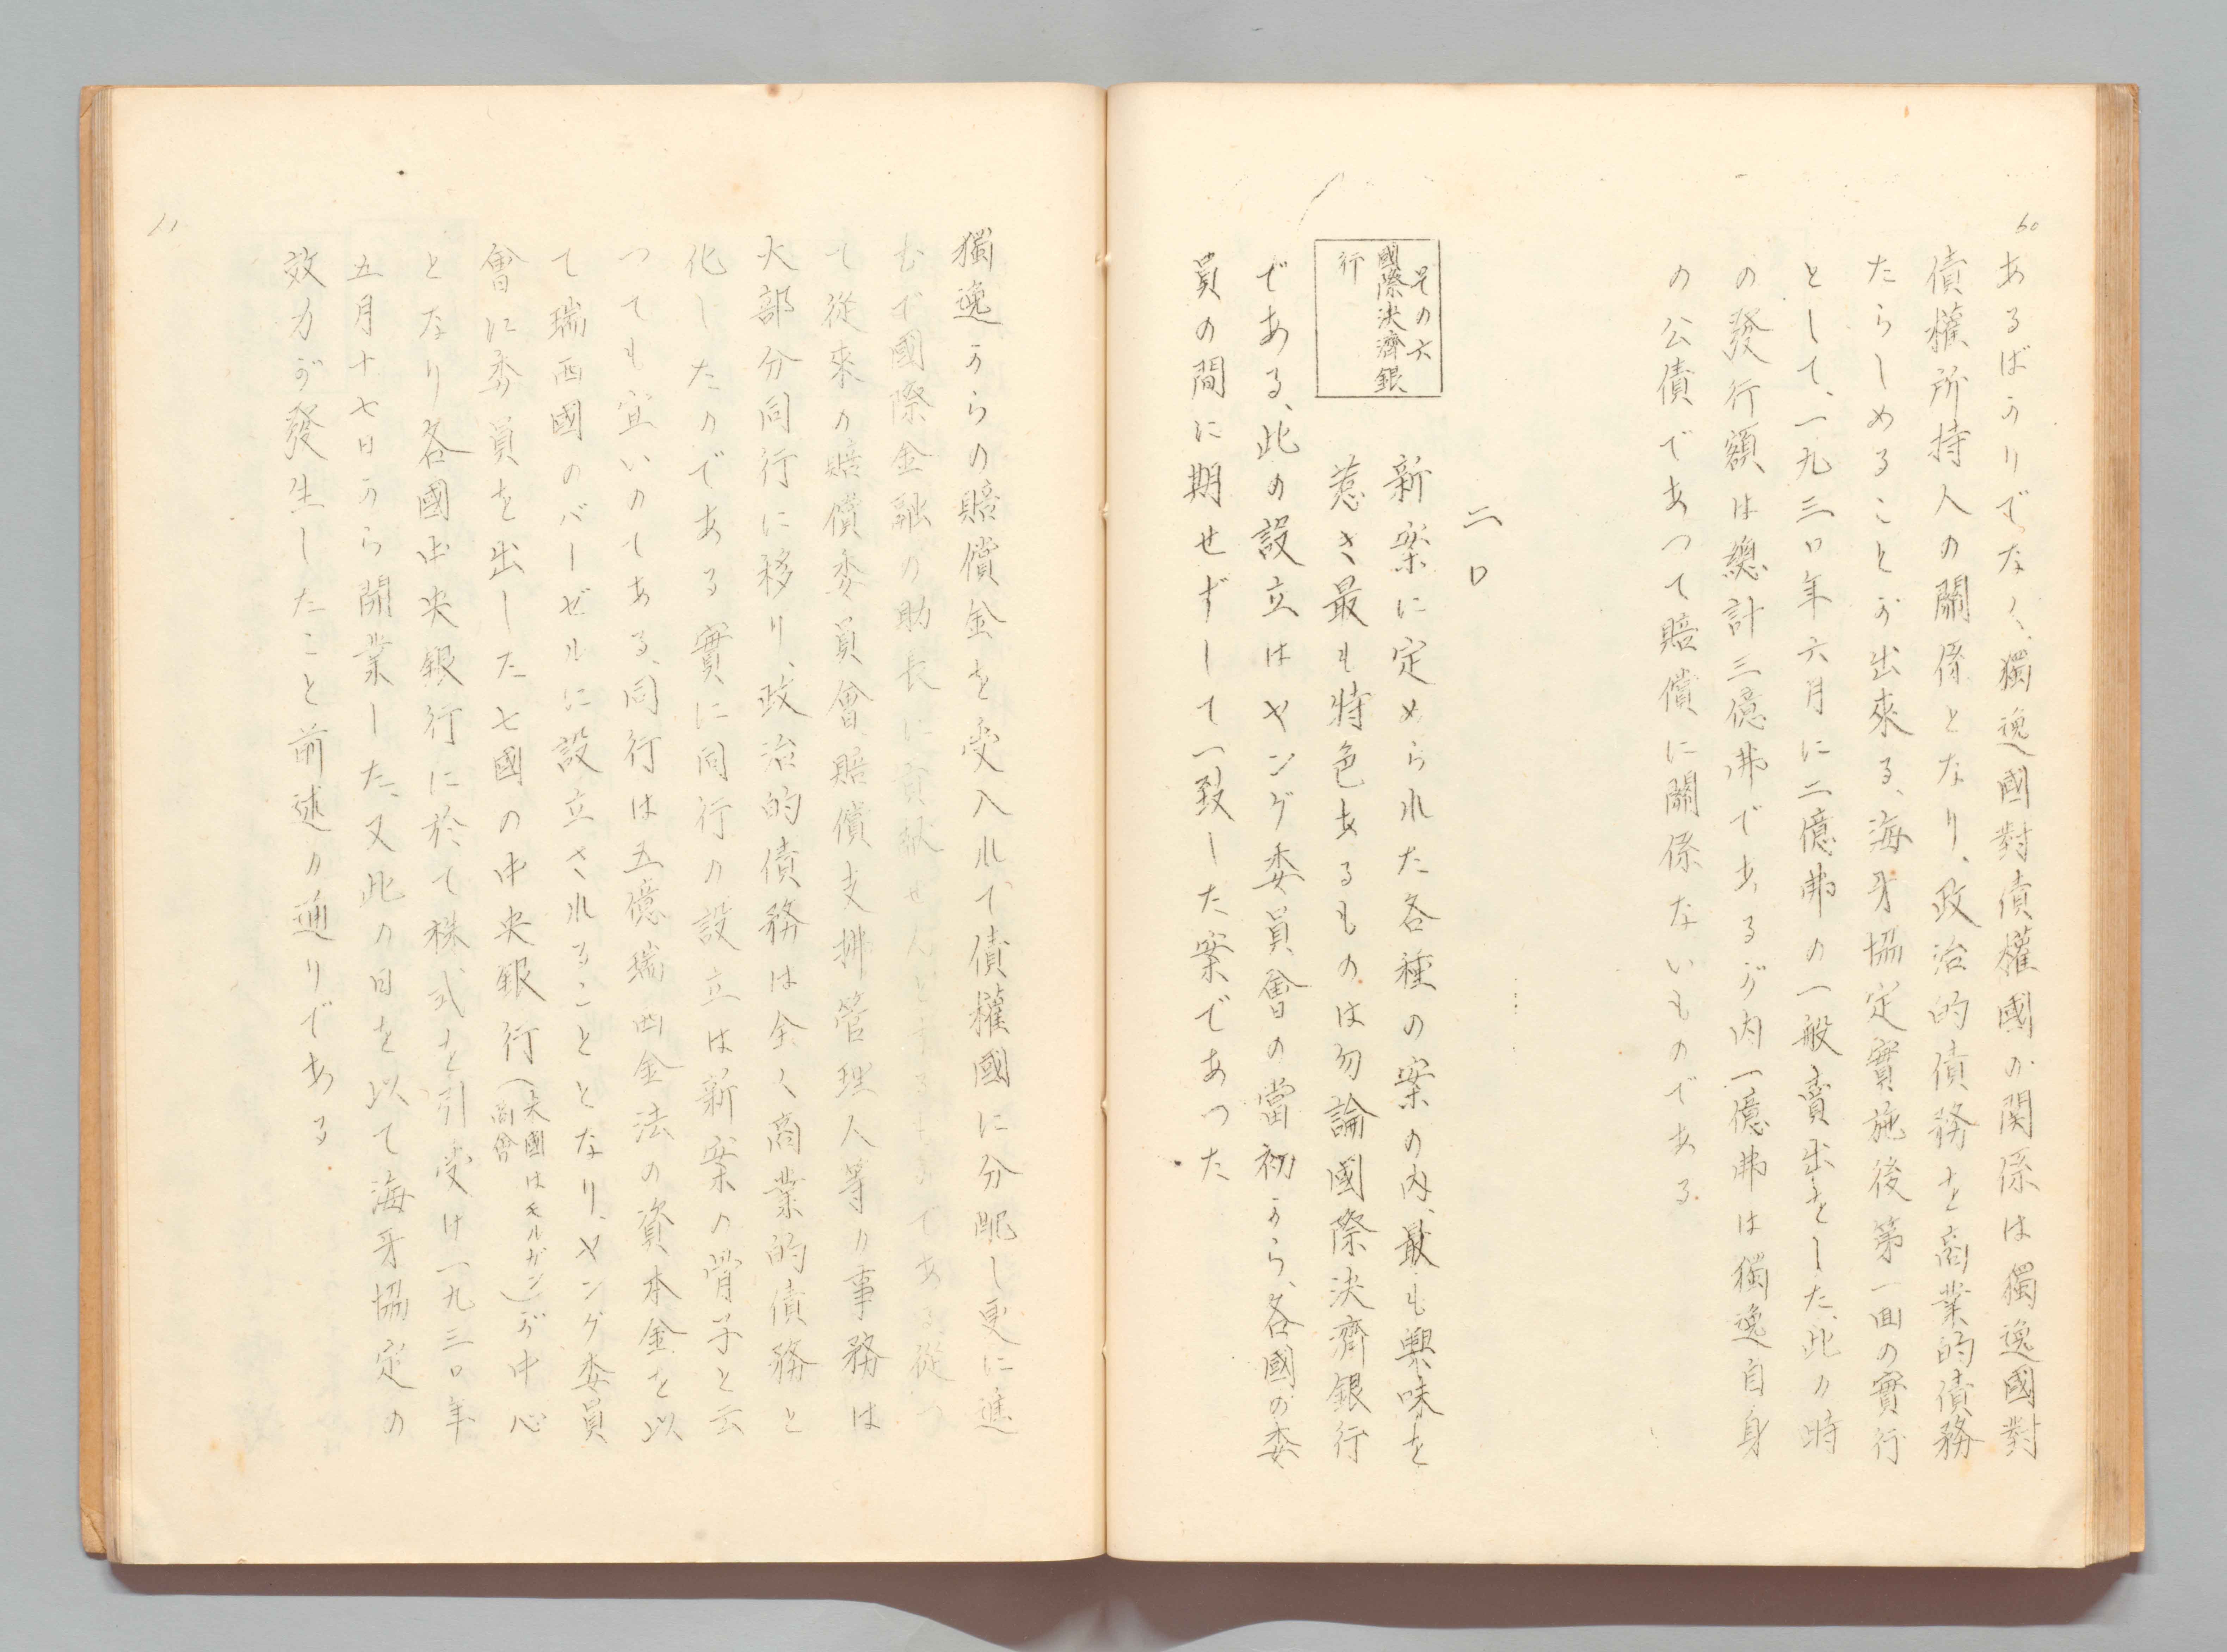 60
あるばかりでなく、獨逸國對債權國の関係は獨逸國對
債權所持人の關係となり、政治的債務を商業的債務
たらしめることが出來る、海牙協定實施後第一回の實行
として、一九三〇年六月に二億弗の一般賣出をした、此の時
の發行額は總計三億弗であるが内一億弗は獨逸自身
の公債であつて賠償に關係ないものである
二〇
その六
國際決濟銀
行
新案に定められた各種の案の内、最も興味を
惹き最も特色あるものは勿論國際決濟銀行
である、此の設立はヤング委員會の當初から、各國の委
員の間に期せずして一致した案であつた
獨逸からの賠償金を受入れて債權國に分配し更に進
むで國際金融の助長に貢献せんとするものである、從つ
て從來の賠償委員會賠償支拂管理人等の事務は
大部分同行に移り、政治的債務は全く商業的債務と
化したのである實に同行の設立は新案の骨子と云
つても宜いのてある、同行は五億瑞西金法の資本金を以
て瑞西國のバーゼルに設立されることとなり、ヤング委員
會に委員を出した七國の中央銀行(米國はモルガン商會)が中心
となり各國中央銀行に於て株式を引受け一九三〇年
五月十七日から開業した、又此の日を以て海牙協定の
效力が發生したこと前述の通りである